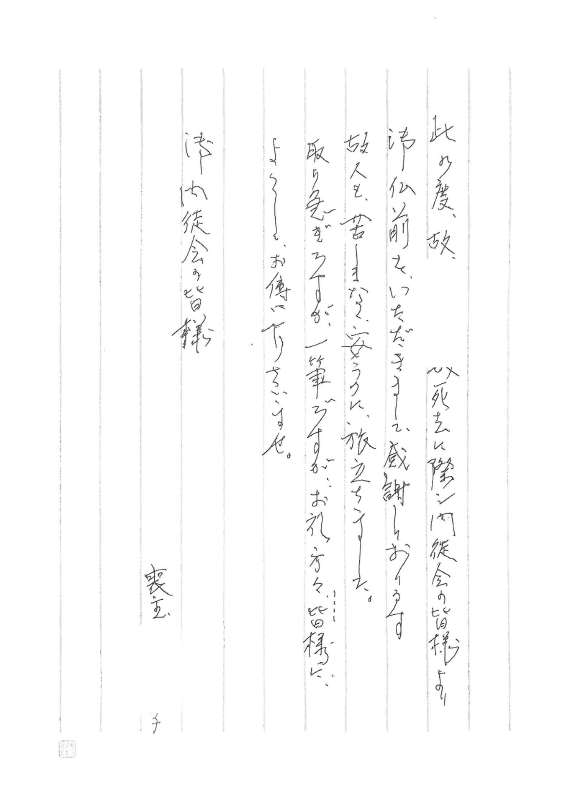 此の度、故、 死去に際し門徒会の皆様より
御仏前を、いただきまして、感謝しております
故人も、苦しまなく、安らかに、旅立ちました。
取り急ぎですが、一筆ですが、お礼方々、皆様に、
よろしく、お傳へ下さいませ。
御門徒会の皆様
喪主